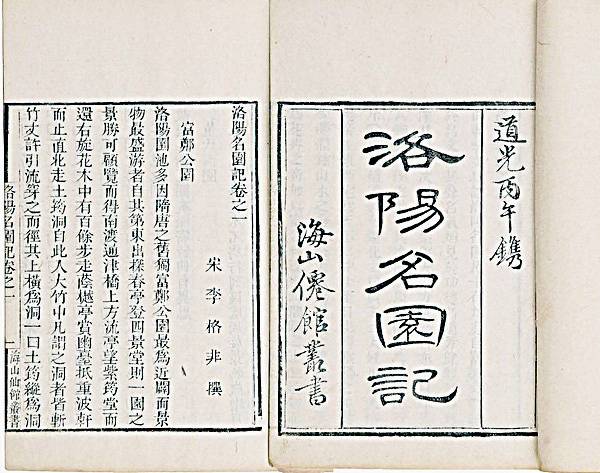 道光丙午鐫
洛陽名園記
海山僊館叢書
洛陽名園記卷之一
宋李格非撰
富鄭公園
洛陽園池多因隋唐之舊獨富鄭公園最爲近闢而景
物最盛游者自其第東出探春亭登四景堂則一園之
景勝可顧覽而得南渡通津橋上方流亭望紫筠堂而
還右旋花木中有百餘步走蔭樾亭賞幽臺抵重波軒
而止直北走土筠洞自此入大竹中凡謂之洞者皆斬
竹丈許引流穿之而徑其上橫爲洞一曰土筠縱爲洞
洛陽名園記卷之一
一
海山仙館叢書